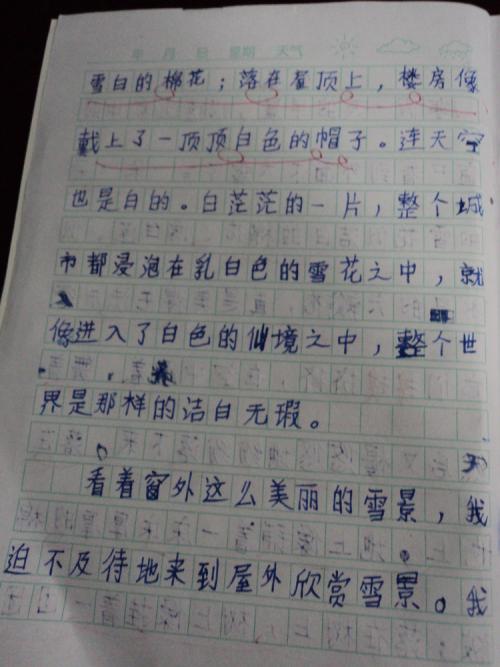 年 月 日 星期 天气
雪白的棉花；落在屋顶上，楼房像
戴上了一顶顶白色的帽子。连天空
也是白的。白茫茫的一片，整个城
市都浸泡在乳白色的雪花之中，就
像进入了白色的仙境之中，整个世
界是那样的洁白无瑕。
看着窗外这么美丽的雪景，我
迫不及待地来到屋外欣赏雪景。我